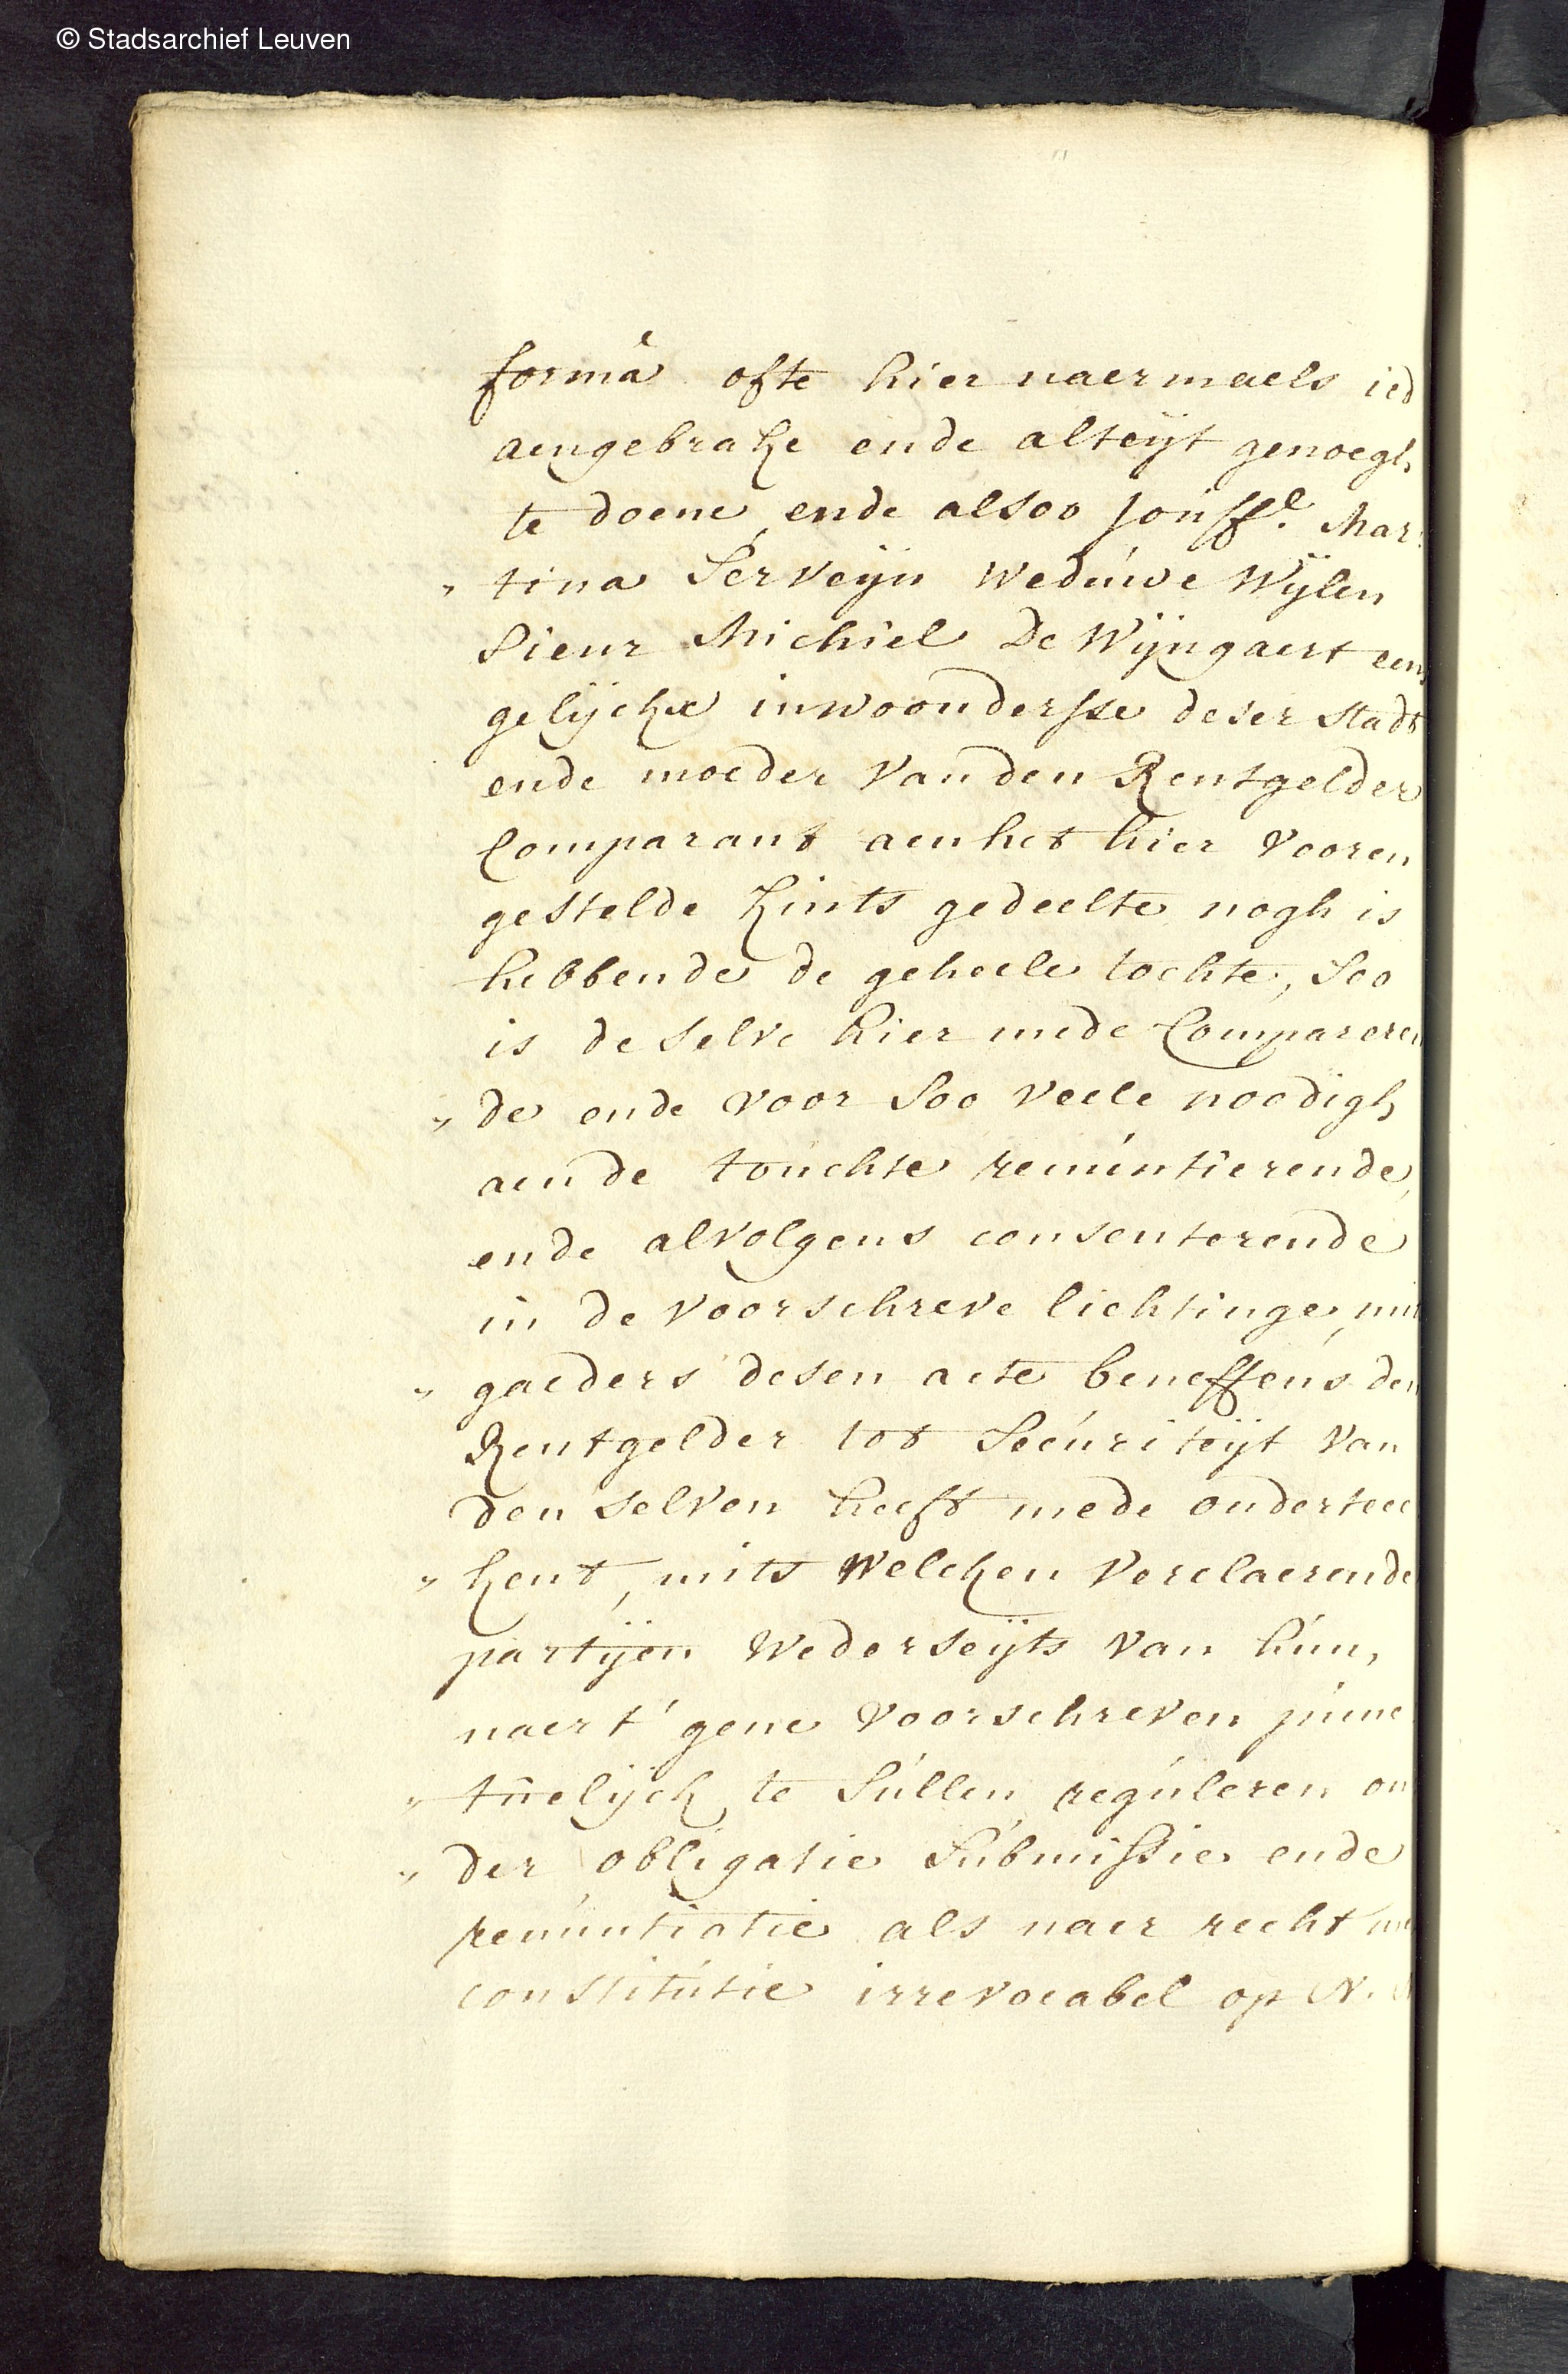 © Stadsarchief Leuven
formâ ofte hier naermaels ied
aengebrake ende alteijt genoegh
te doene, ende alsoo Jouffe. Mar:
" tina Serveijn Weduwe Wijlen
Sieur Michiel De Wijngaert een
gelijckx inwoondersse deser Stadt
ende moeder Van den Rentgelder
Comparant aen het hier Vooren
gestelde Kints gedeelte nogh is
hebbende de geheele tochte, Soo
is de Selve hier mede Compareren
" de ende voor Soo Veele noodigh
aen de touchte renuntierende,
ende alvolgens consenterende
in de Voorschreve lichtinge, mit
" gaeders desen acte beneffens den
Rentgelder tot Securiteijt Van
den Selven heeft mede ondertee
" kent, mits Welcken Verclaerende
partijen Wederseijts Van hun,
naer t' gene Voorschreven punc
" tuelijck te Sullen reguleren on
" der obligatie Submissie ende
renuntiatie als naer recht met
constitutie irrevocabel op N.